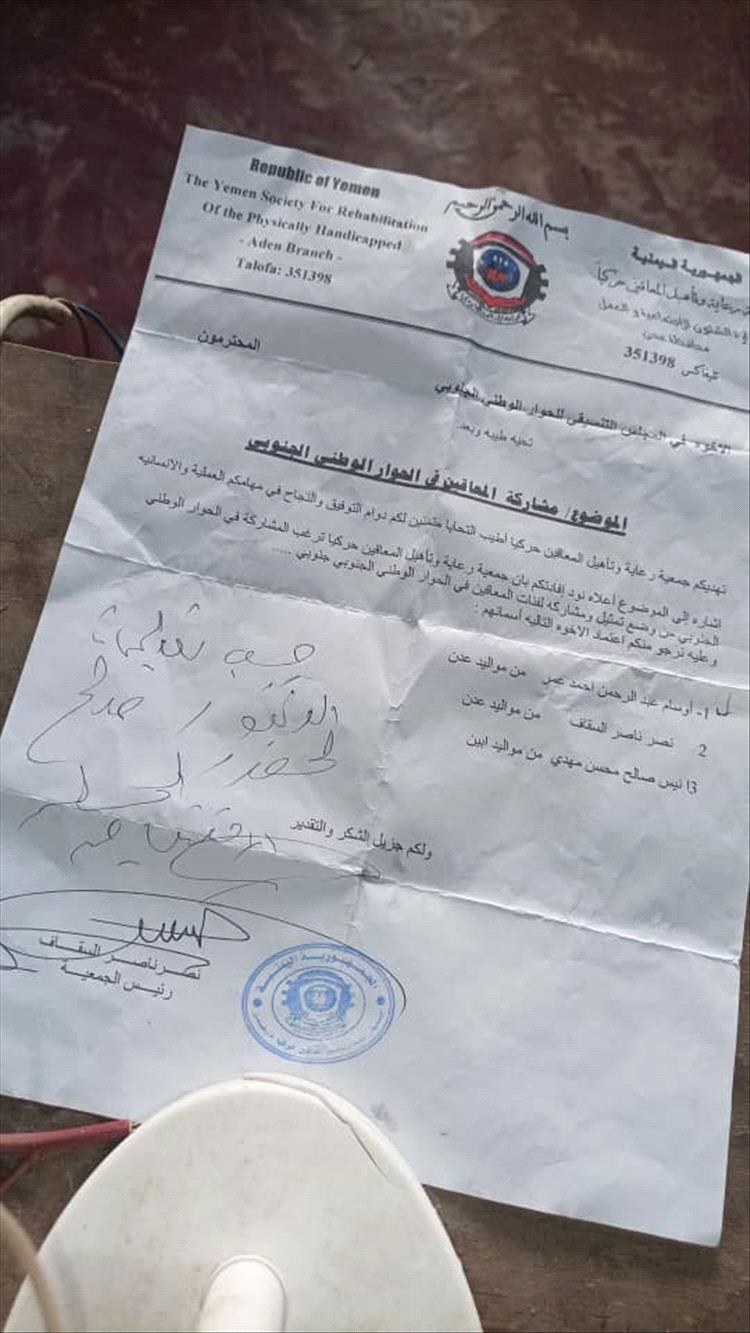 Republic of Yemen
The Yemen Society For Rehabilitation
Of the Physically Handicapped
- Aden Branch -
Talofa: 351398
بسم الله الرحمن الرحيم
الجمهورية اليمنية
رعاية وتأهيل المعاقين حركياً
الشئون الاجتماعية و العمل
محافظة عدن
تليفاكس 351398
الاخوه في المجلس التنسيقي للحوار الوطني الجنوبي
المحترمون
تحيه طيبه وبعد.
الموضوع/ مشاركة المعاقين في الحوار الوطني الجنوبي
تهديكم جمعية رعاية وتأهيل المعاقين حركيا اطيب التحايا متمنين لكم دوام التوفيق والنجاح في مهامكم العملية والانسانيه
اشاره إلى الموضوع أعلاه نود إفادتكم بان جمعية رعاية وتأهيل المعاقين حركيا ترغب المشاركة في الحوار الوطني
الجنوبي من وضع تمثيل ومشاركه لفئات المعاقين في الحوار الوطني الجنوبي جنوبي .....
وعليه نرجو منكم اعتماد الاخوه التاليه أسمائهم :
1- أوسام عبد الرحمن احمد عمر من مواليد عدن
2 نصر ناصر السقاف من مواليد عدن
3 انيس صالح محسن مهدي من مواليد ابين
ولكم جزيل الشكر والتقدير
حسب
الدكتور صالح
نصر ناصر السقاف
رئيس الجمعية
الجمهورية اليمنية